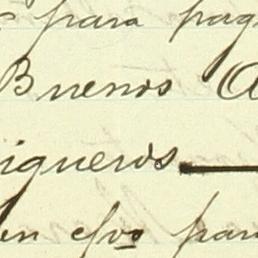 para pag
Buenos A
igueros
en efvo para